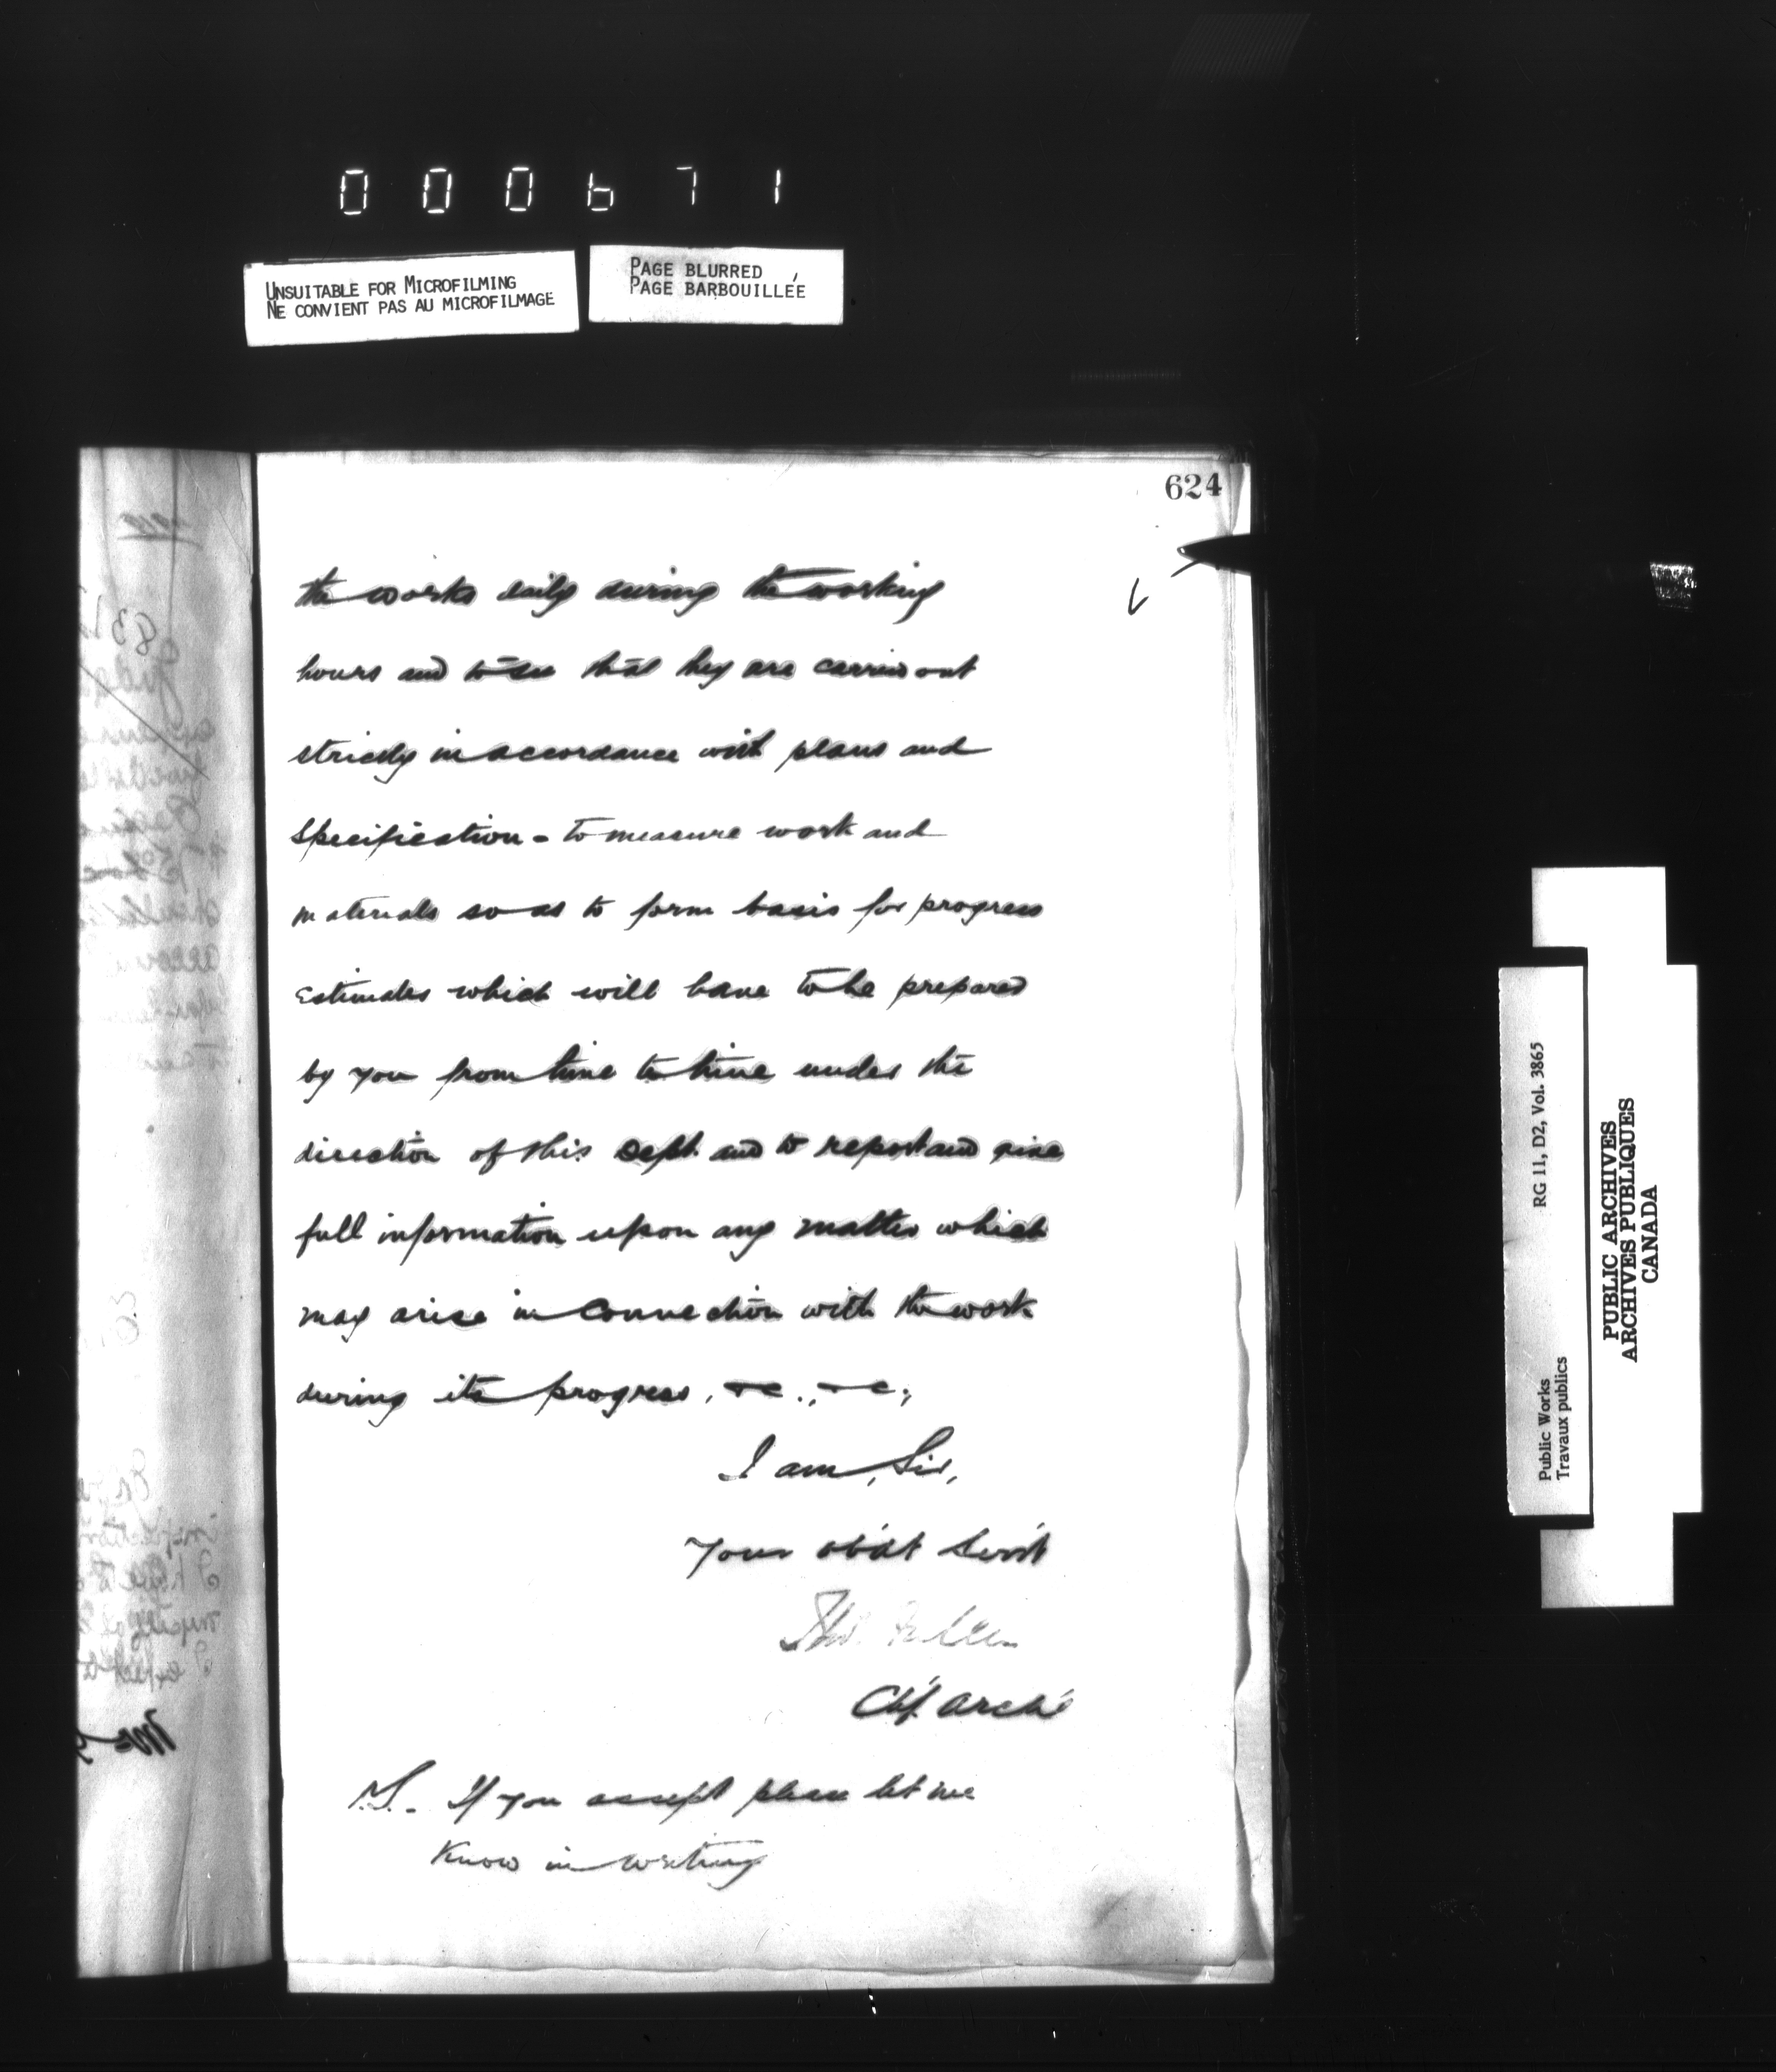 000671
UNSUITABLE FOR MICROFILMING
NE CONVIENT PAS AU MICROFILMAGE
PAGE BLURRED
PAGE BARBOUILLÉE
624
the works daily during the working
hours and to see that they are carried out
strictly in accordance with plans and
Specification - to measure work and
materials so as to form basis for progress
estimates which will have to be prepared
by you from time to time under the
direction of this Dept. and to report and give
full information upon any matter which
may arise in connection with the work
during its progress, &c., &c.,
I am, Sir,
Your ob'dt Serv't
Thos. Fuller
Ch'f. Arch't
P.S. If you accept please let me
Know in writing
RG 11, D2, Vol. 3865
Public Works
Travaux publics
PUBLIC ARCHIVES
ARCHIVES PUBLIQUES
CANADA